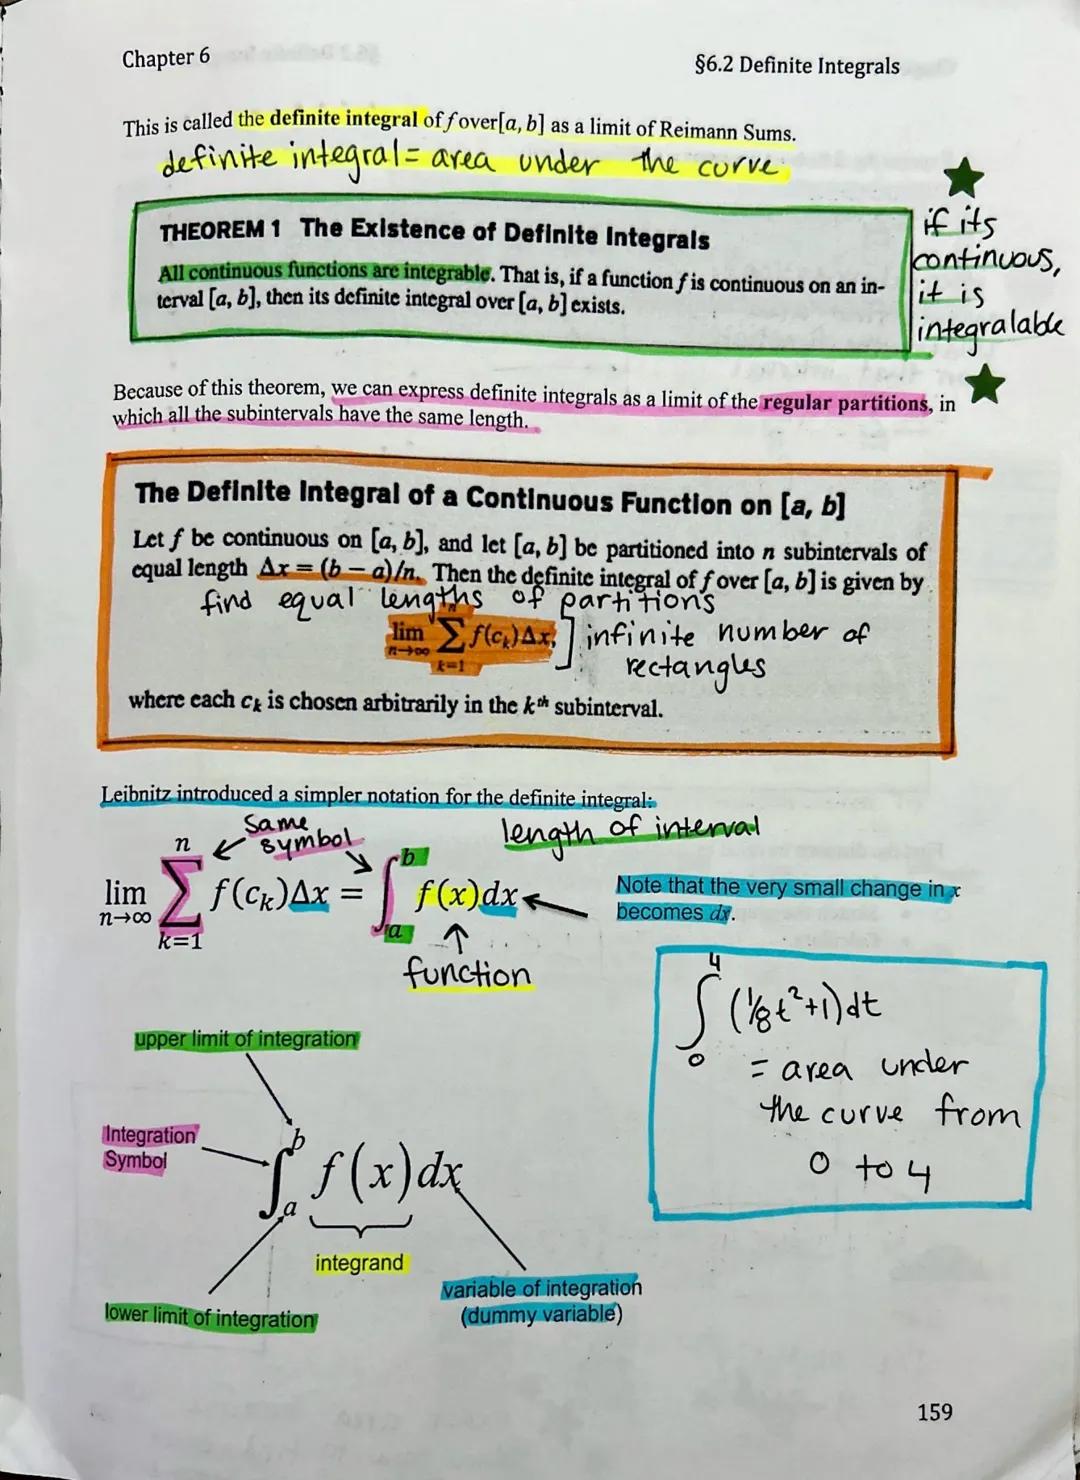 Chapter 6
§6.2 Definite Integrals
This is called the definite integral of f over[a, b] as a limit of Reimann Sums.
definite integral = area under the curve
THEOREM 1 The Existence of Definite Integrals
All continuous functions are integrable. That is, if a function f is continuous on an in-
terval [a, b], then its definite integral over [a, b] exists.
if its
continuous,
it is
integralable
Because of this theorem, we can express definite integrals as a limit of the regular partitions, in
which all the subintervals have the same length.
The Definite Integral of a Continuous Function on [a, b]
Let f be continuous on [a, b], and let [a, b] be partitioned into n subintervals of
equal length Δx = (b − a)/n. Then the definite integral of f over [a, b] is given by
find equal lengths of partitions
lim n→∞ ∑ k=1 n f(cₖ)Δx,
] infinite number of
rectangles
where each cₖ is chosen arbitrarily in the kᵗʰ subinterval.
Leibnitz introduced a simpler notation for the definite integral:
Same
symbol
length of interval
lim n→∞ ∑ k=1 n f(cₖ)Δx = ∫ a b f(x)dx
Note that the very small change in x
becomes dx.
function
∫ 0 4 (1/8t²+1)dt
= area under
the curve from
0 to 4
upper limit of integration
Integration
Symbol
∫ a b f(x)dx
integrand
variable of integration
(dummy variable)
lower limit of integration
159